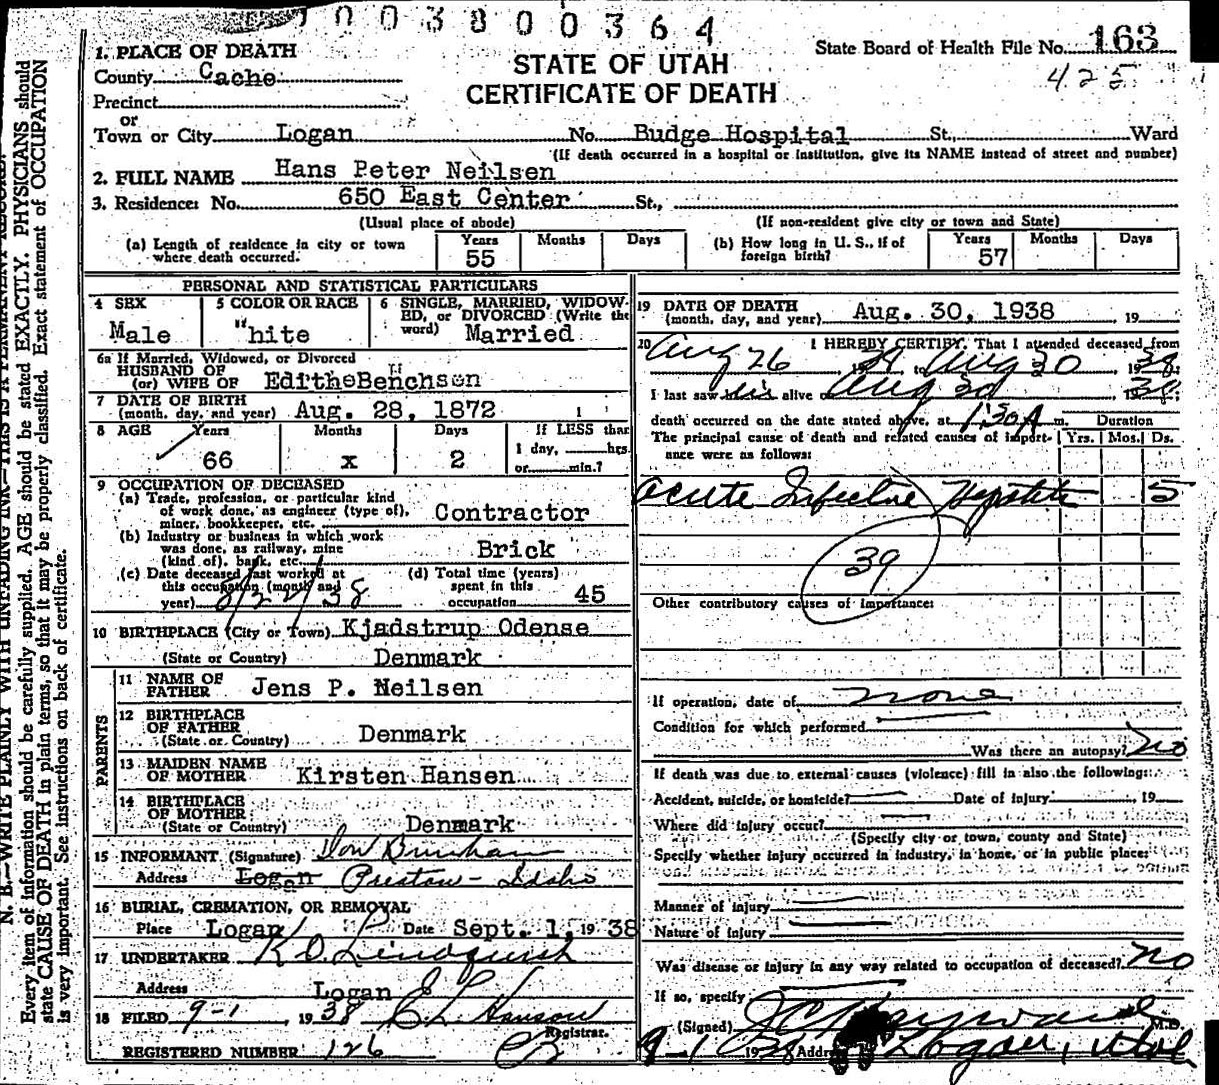 0 0 3 8 0 0 3 6 4
1. PLACE OF DEATH
County Cache
STATE OF UTAH
CERTIFICATE OF DEATH
State Board of Health File No. 163
425
Precinct
or
Town or City Logan No. Budge Hospital St., Ward
(If death occurred in a hospital or institution, give its NAME instead of street and number)
2. FULL NAME Hans Peter Neilsen
3. Residence: No. 650 East Center St.,
(Usual place of abode) (If non-resident give city or town and State)
(a) Length of residence in city or town where death occurred. Years 55 Months Days (b) How long in U. S., if of foreign birth? Years 57 Months Days
PERSONAL AND STATISTICAL PARTICULARS
4 SEX Male
5 COLOR OR RACE "hite
6 SINGLE, MARRIED, WIDOWED, or DIVORCED (Write the word) Married
6a If Married, Widowed, or Divorced
HUSBAND OF
(or) WIFE OF Edith Benchsen
7 DATE OF BIRTH
(month, day, and year) Aug. 28, 1872
8 AGE Years 66 Months x Days 2 If LESS than 1 day, hrs. or min.?
9 OCCUPATION OF DECEASED
(a) Trade, profession, or particular kind
of work done, as engineer (type of),
miner, bookkeeper, etc. Contractor
(b) Industry or business in which work
was done, as railway, mine
(kind of), bank, etc. Brick
(c) Date deceased last worked at
this occupation (month and
year) 8/22/38
(d) Total time (years)
spent in this
occupation 45
10 BIRTHPLACE (City or Town) Kjadstrup Odense
(State or Country) Denmark
PARENTS
11 NAME OF
FATHER Jens P. Neilsen
12 BIRTHPLACE
OF FATHER
(State or Country) Denmark
13 MAIDEN NAME
OF MOTHER Kirsten Hansen
14 BIRTHPLACE
OF MOTHER
(State or Country) Denmark
15 INFORMANT (Signature) Don
Address Logan Preston - Idaho
16 BURIAL, CREMATION, OR REMOVAL
Place Logan Date Sept. 1, 1938
17 UNDERTAKER K D Lindquist
Address Logan
18 FILED 9-1 1938 C L Hanson
Registrar.
REGISTERED NUMBER 126
19 DATE OF DEATH
(month, day, and year) Aug. 30, 1938 19
20 I HEREBY CERTIFY, That I attended deceased from
Aug 26 1938 to Aug 30 1938
I last saw his alive on Aug 30, 1938;
death occurred on the date stated above, at 1:30 A m. Duration
The principal cause of death and related causes of importance were as follows: Yrs. Mos. Ds.
Acute Infective Hepatitis 5
39
Other contributory causes of importance:
If operation, date of none
Condition for which performed
Was there an autopsy? No
If death was due to external causes (violence) fill in also the following:
Accident, suicide, or homicide? Date of injury , 19
Where did injury occur?
(Specify city or town, county and State)
Specify whether injury occurred in industry, in home, or in public place:
Manner of injury
Nature of injury
Was disease or injury in any way related to occupation of deceased? No
If so, specify
(Signed) J C Hayward M.D.
9-1 1938 Address Logan, Utah
N. B.—WRITE PLAINLY WITH UNFADING INK—THIS IS A PERMANENT RECORD.
Every item of information should be carefully supplied. AGE should be stated EXACTLY. PHYSICIANS should
state CAUSE OF DEATH in plain terms, so that it may be properly classified. Exact statement of OCCUPATION
is very important. See instructions on back of certificate.